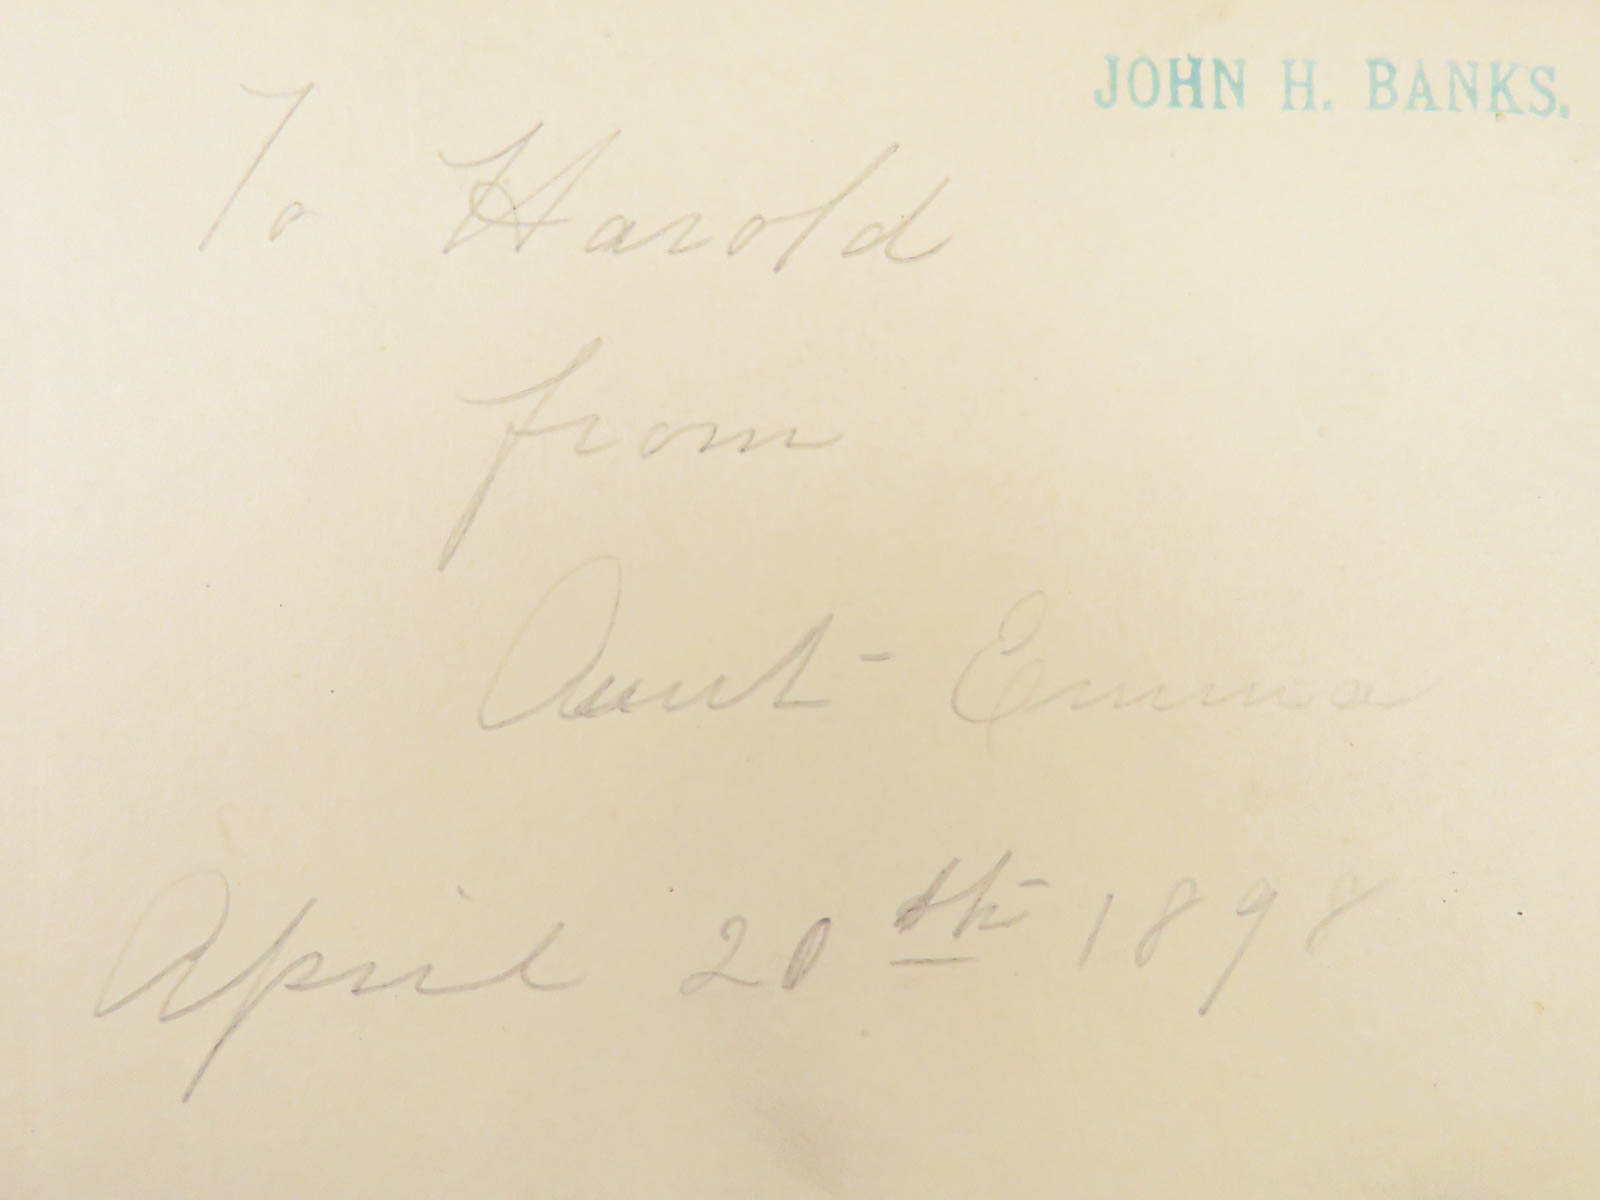 JOHN H. BANKS.
To Harold
from
Aunt Emma
April 20th 1898